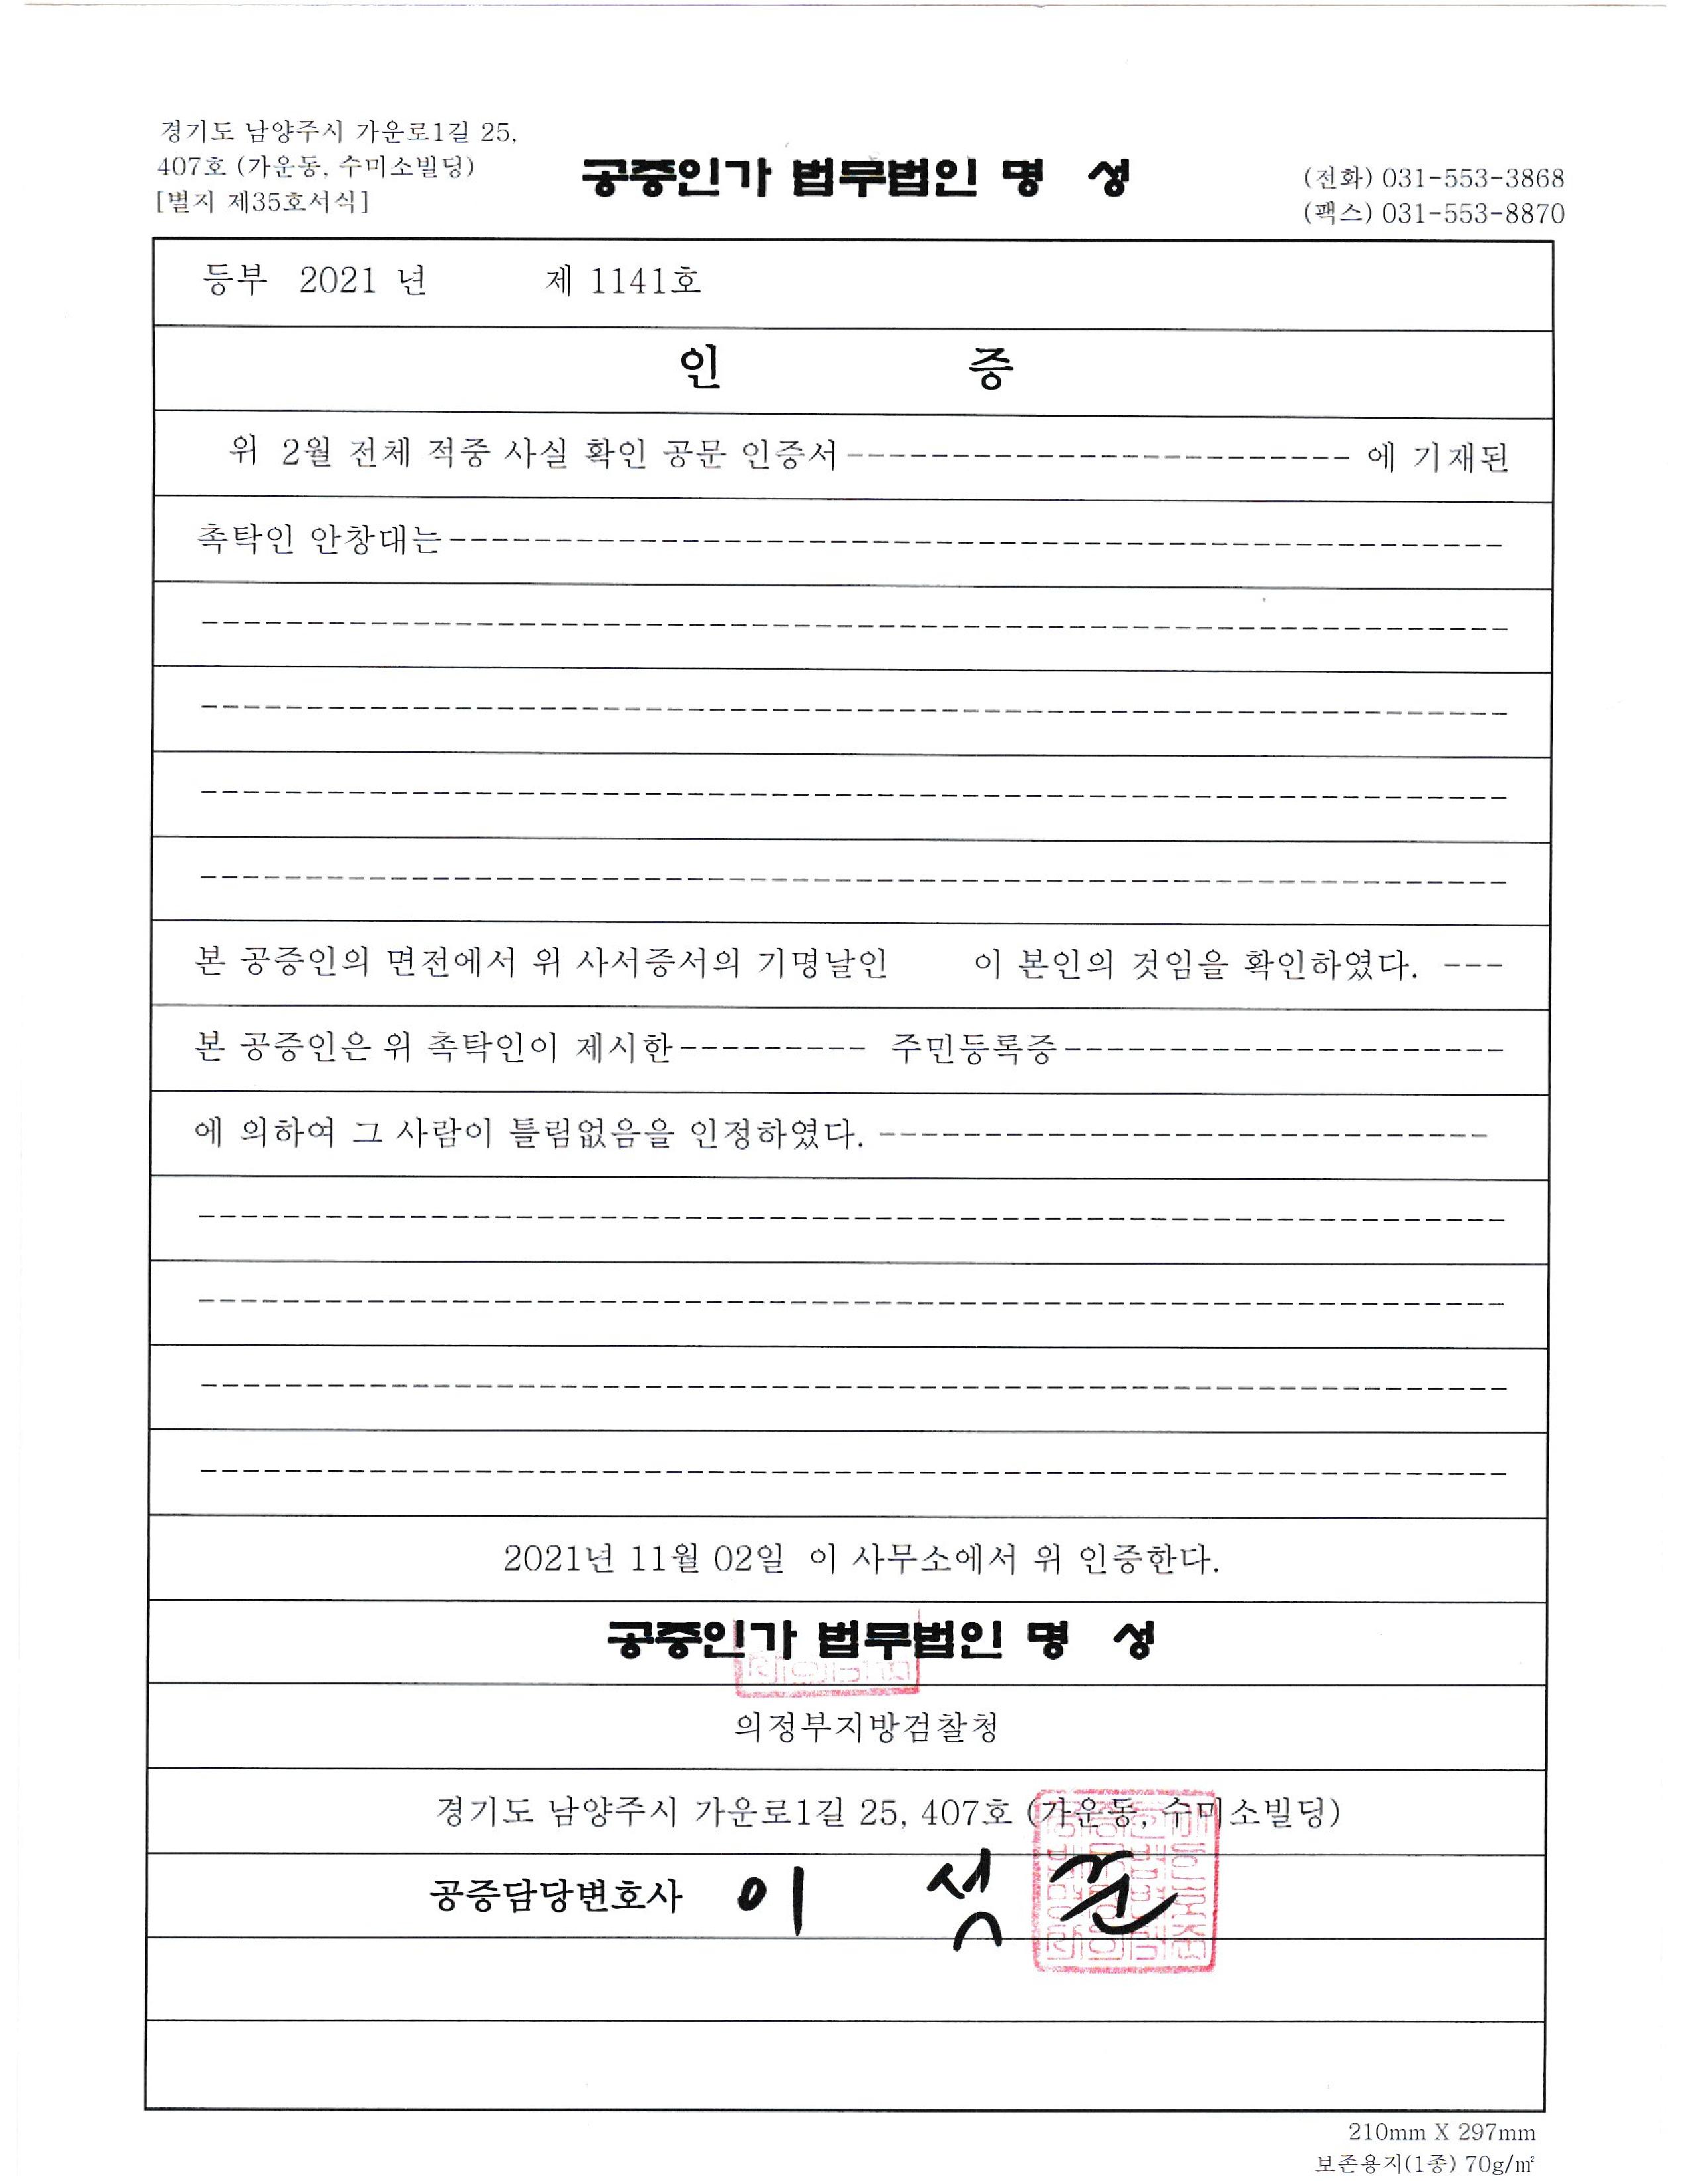 경기도 남양주시 가운로1길 25,
407호 (가운동, 수미소빌딩)
[별지 제35호서식]
공증인가 법무법인 명 성
(전화) 031-553-3868
(팩스) 031-553-8870
등부 2021 년 제 1141호
인 증
위 2월 전체 적중 사실 확인 공문 인증서------------------------ 에 기재된
촉탁인 안창대는--------------------------------------------------
본 공증인의 면전에서 위 사서증서의 기명날인 이 본인의 것임을 확인하였다. ---
본 공증인은 위 촉탁인이 제시한--------- 주민등록증---------------------
에 의하여 그 사람이 틀림없음을 인정하였다. -----------------------------
2021년 11월 02일 이 사무소에서 위 인증한다.
공증인가 법무법인 명 성
의정부지방검찰청
경기도 남양주시 가운로1길 25, 407호 (가운동, 수미소빌딩)
공증담당변호사 이 석 준
210mm X 297mm
보존용지(1종) 70g/㎡